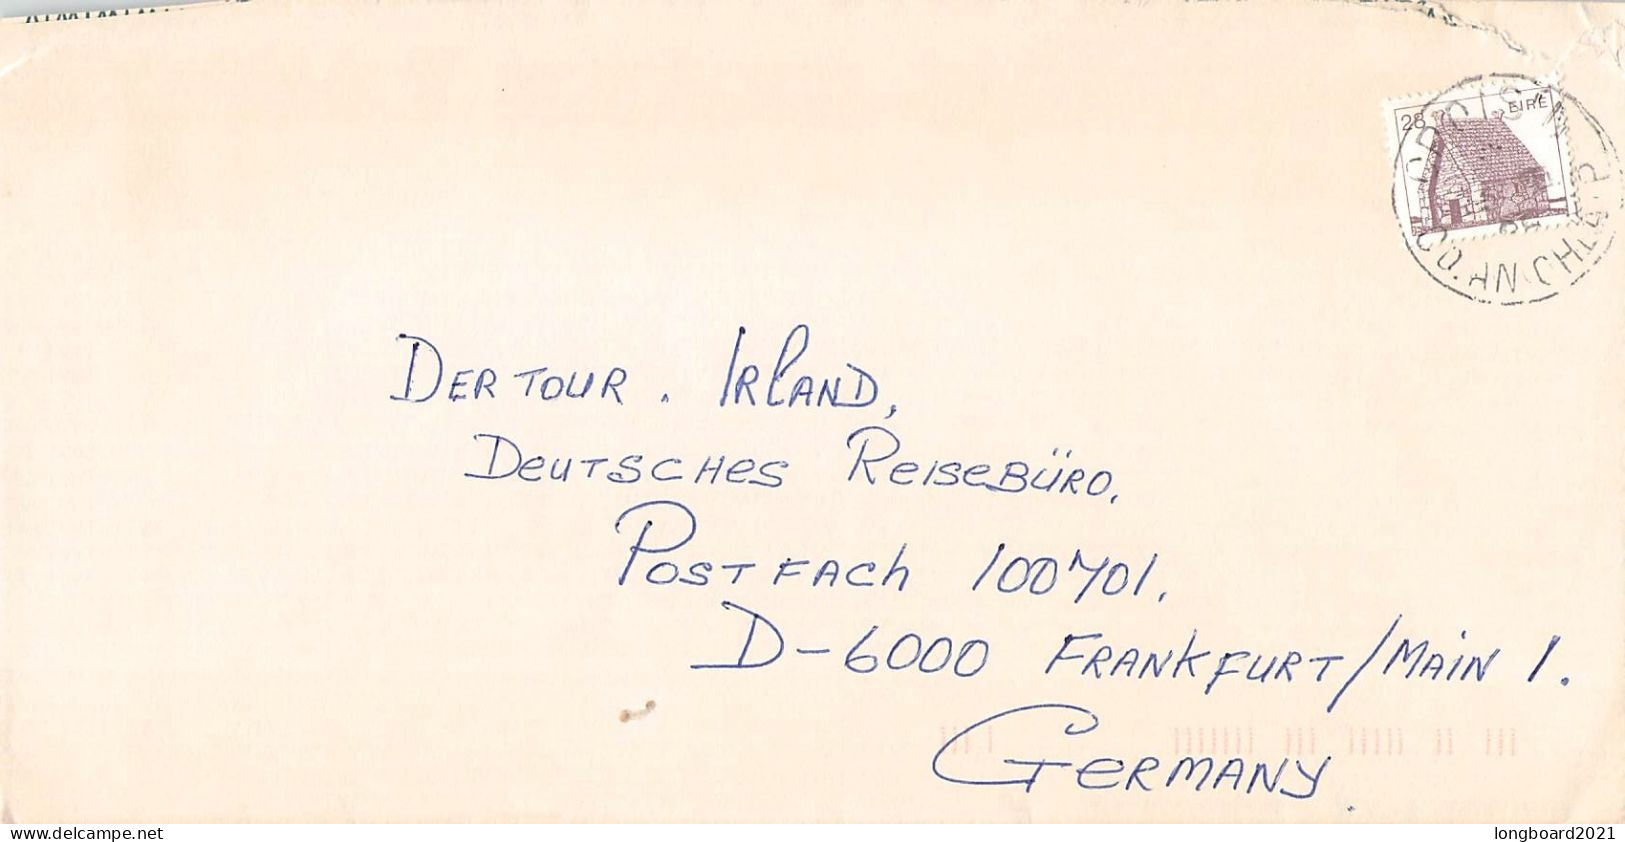 28 EIRE
DERTOUR. IRLAND,
DEUTSCHES REISEBÜRO.
POSTFACH 100701.
D-6000 FRANKFURT/MAIN 1.
GERMANY.
delcampe.net
longboard2021